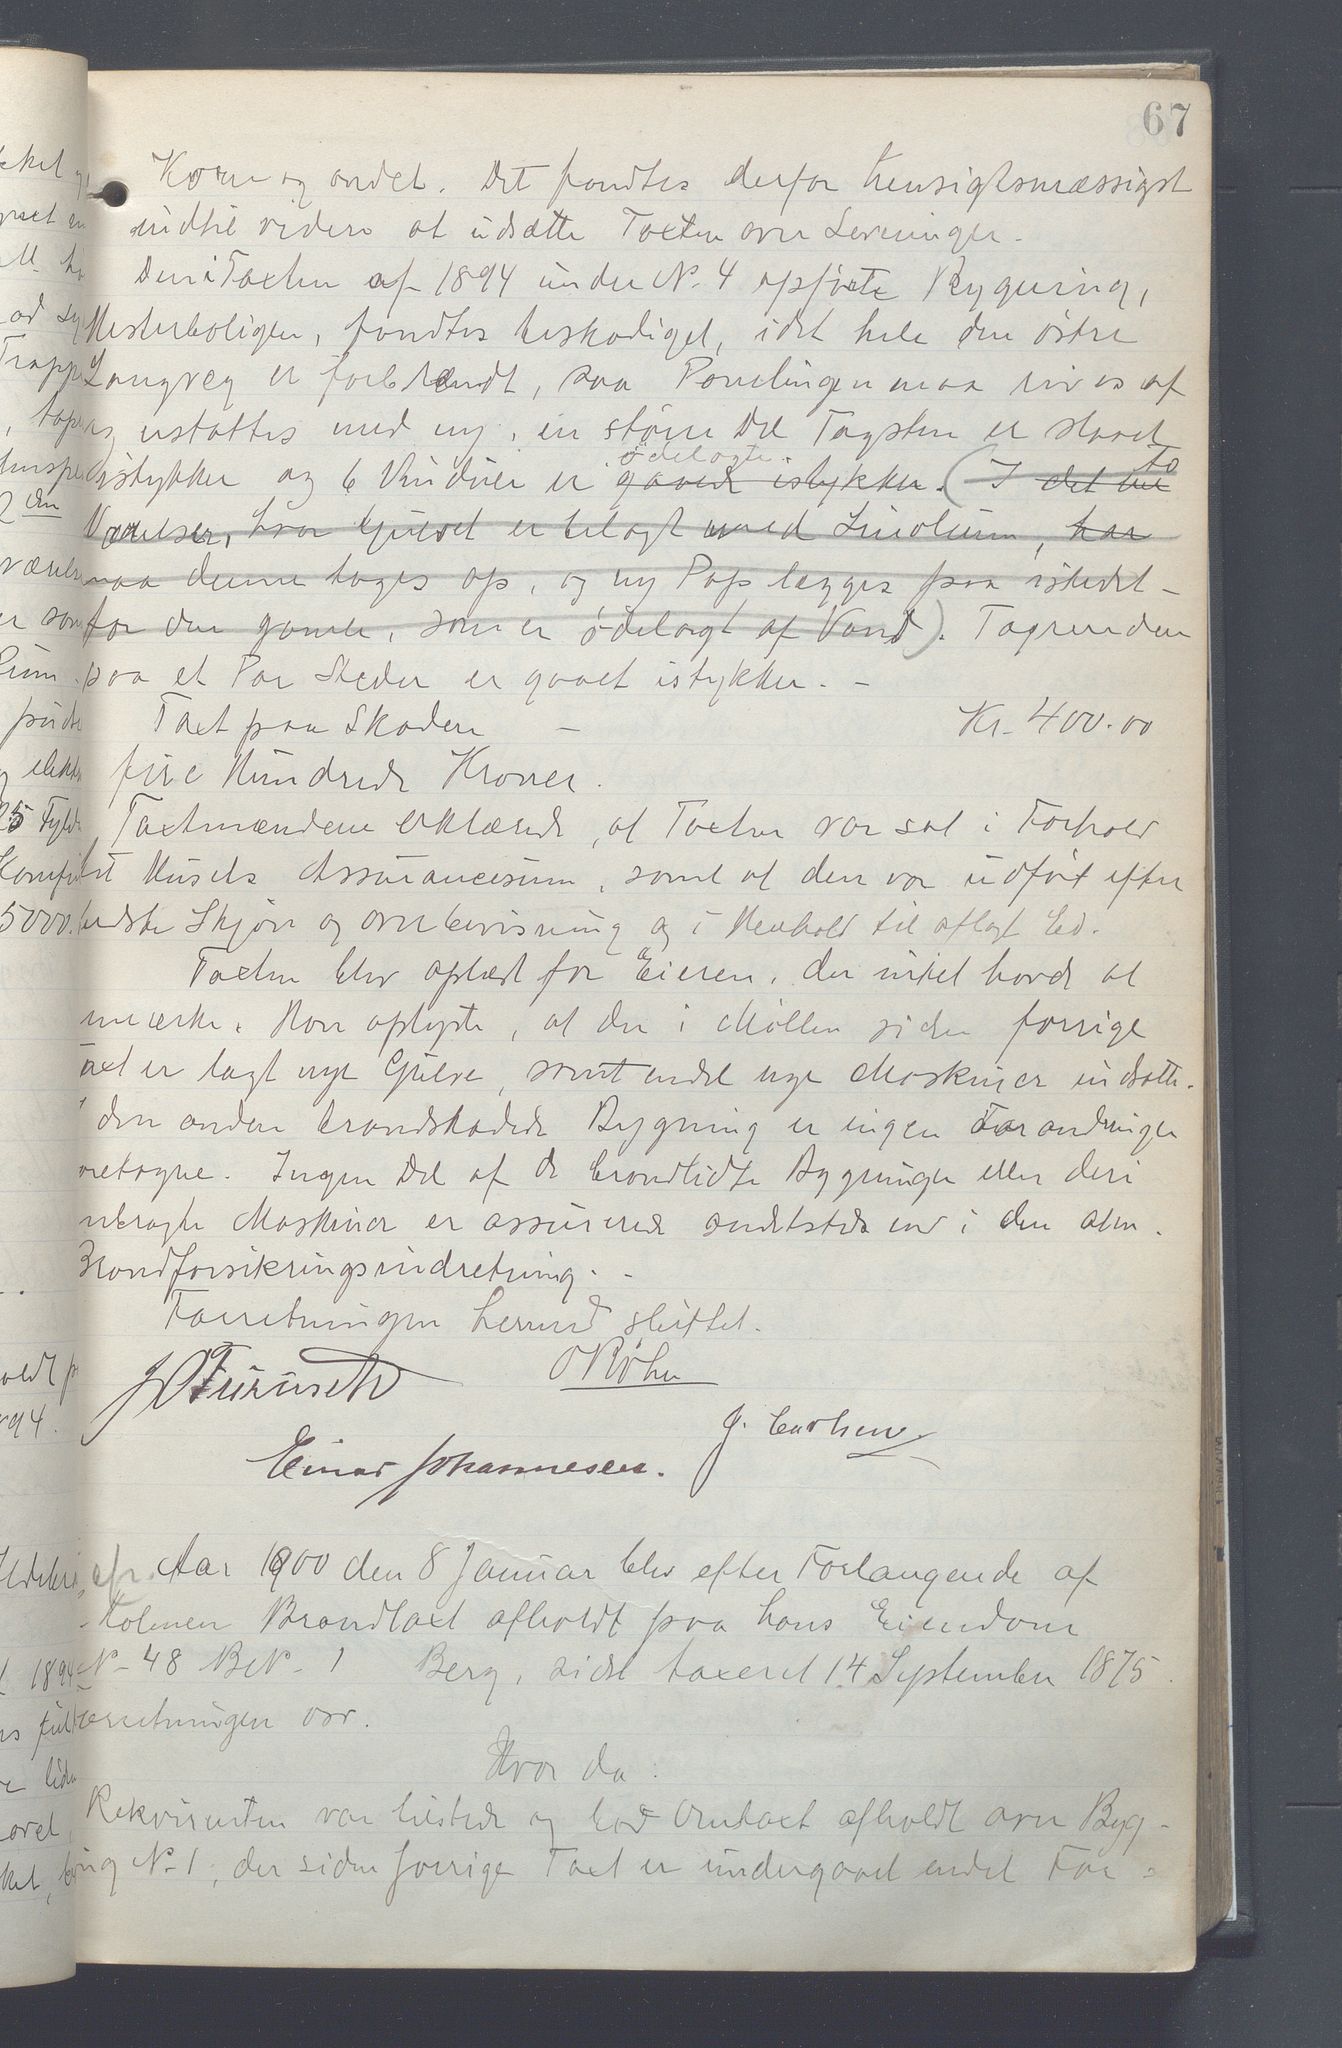 67
Korn og andet. Det fandtes derfor hensigtsmæssigst
indtil videre at udsætte Taxten over Levninger.
Den i Taxten af 1894 under N. 4 opførte Bygning,
Mesterboligen, fandtes beskadiget, idet hele den østre
Langvæg er forbrændt, saa Panelingen maa rives af
og erstattes med ny, en større Del Tagsten er slaaet
istykker og 6 Vinduer er gaaede istykker. ødelagte. (I det to
Værelser, hvor Gulvet er belagt med Linoleum, har
maa denne tages op, og ny Pap lægges paa istedet-
for den gamle, som er ødelagt af Vand). Tagrenden
paa et Par Steder er gaaet istykker. -
Taxt paa Skaden - Kr. 400.00
fire Hundrede Kroner.
Taxtmændene erklærede, at Taxten var sat i Forhold
til Husets Assurancesum, samt at den var udført efter
bedste Skjøn og overbevisning og i Henhold til aflagt Ed.
Taxten blev oplæst for Eieren, der intet havde at
bemærke. Han oplyste, at der i Møllen siden forrige
Taxt er lagt nye Gulve, samt endel nye Maskiner indsatte.
I den anden brandskadede Bygning er ingen Forandringer
foretagne. Ingen Del af de brandlidte Bygninger eller deri
anbragte Maskiner er assurerede andetsteds end i den alm.
Brandforsikringsindretning. -
Forretningen hermed sluttet.
J. O. Furuseth O Bøhn
J. Carlsen
Einar Johannesen.
Aar 1900 den 8 Januar blev efter Forlangende af
Holmen Brandtaxt afholdt paa hans Eiendom
N- 48 BN- 1 Berg, sidst taxeret 14 September 1875.
Forretningen var.
Hvor da:
Rekvirenten var tilstede og bad Omtaxt afholdt over Byg-
ning N-1, der siden forrige Taxt er undergaaet endel For-